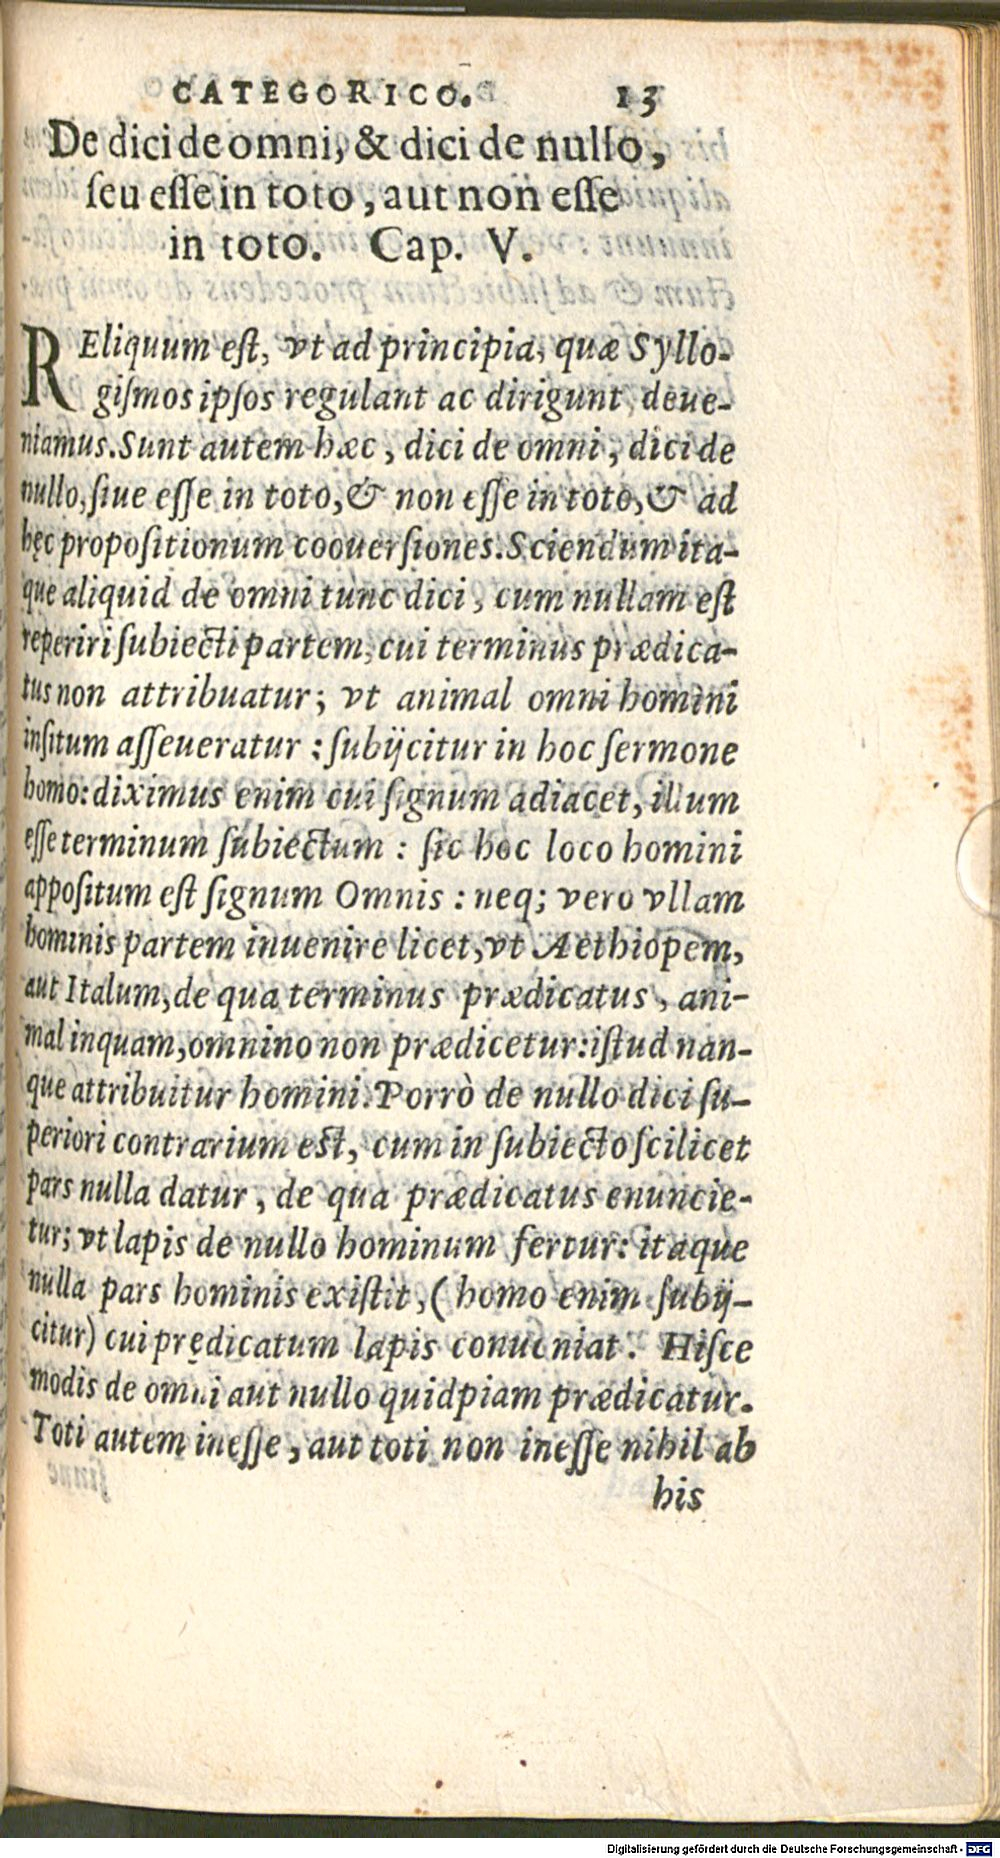 CATEGORICO. 13
De dici de omni, & dici de nullo,
ſeu eſſe in toto, aut non eſſe
in toto. Cap. V.
REliquum eſt, vt ad principia, quæ Syllo-
giſmos ipſos regulant ac dirigunt, deue-
niamus. Sunt autem hæc, dici de omni, dici de
nullo, ſiue eſſe in toto, & non eſſe in toto, & ad
hęc propoſitionum coouerſiones. Sciendum ita-
que aliquid de omni tunc dici, cum nullam eſt
reperiri ſubiecti partem, cui terminus prædica-
tus non attribuatur; vt animal omni homini
inſitum aſſeueratur: ſubijcitur in hoc ſermone
homo: diximus enim cui ſignum adiacet, illum
eſſe terminum ſubiectum: ſic hoc loco homini
appoſitum eſt ſignum Omnis: neq; vero vllam
hominis partem inuenire licet, vt Aethiopem,
aut Italum, de qua terminus prædicatus, ani-
mal inquam, omnino non prædicetur: iſtud nan-
que attribuitur homini. Porrò de nullo dici ſu-
periori contrarium eſt, cum in ſubiecto ſcilicet
pars nulla datur, de qua prædicatus enuncie-
tur; vt lapis de nullo hominum fertur: itaque
nulla pars hominis exiſtit, (homo enim ſubij-
citur) cui prędicatum lapis conueniat. Hiſce
modis de omni aut nullo quidpiam prædicatur.
Toti autem ineſſe, aut toti non ineſſe nihil ab
his
Digitalisierung gefördert durch die Deutsche Forschungsgemeinschaft - DFG